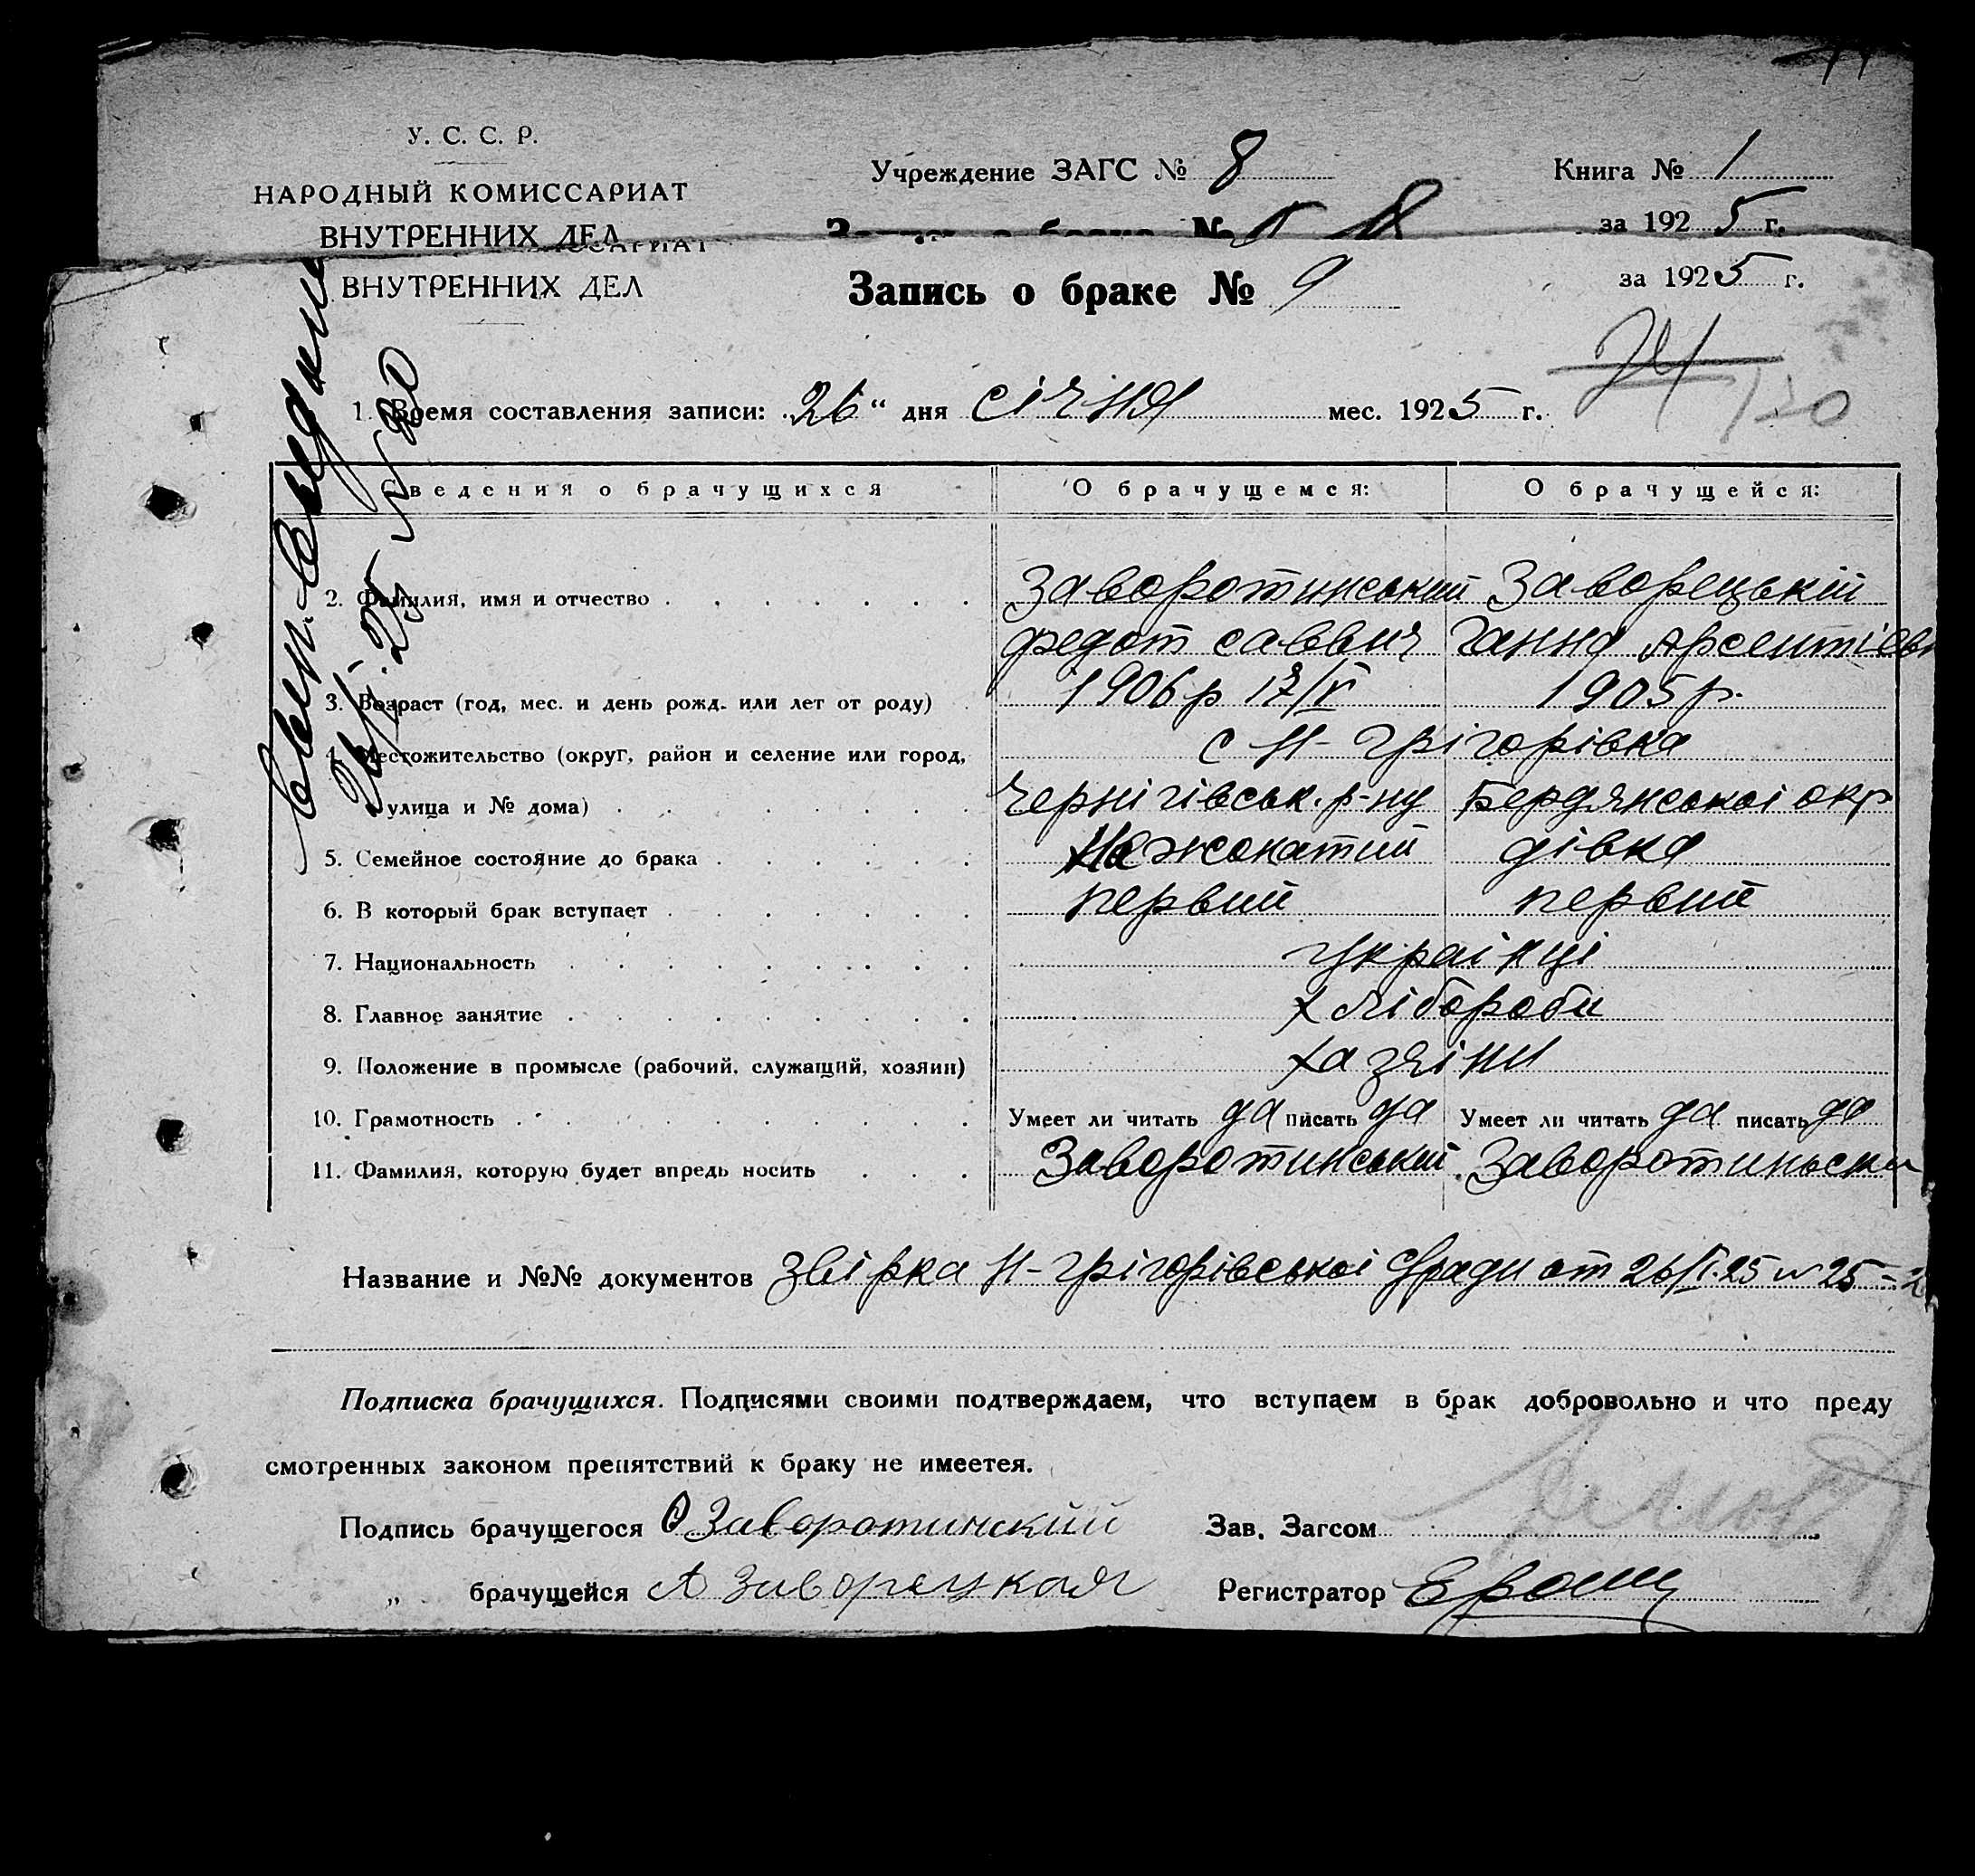 У. С. С. Р.
НАРОДНЫЙ КОМИССАРИАТ
ВНУТРЕННИХ ДЕЛ
Учреждение ЗАГС № 8
Книга № 1
за 1925 г.
ВНУТРЕННИХ ДЕЛ
Запись о браке № 9
за 1925 г.
1. Время составления записи: 26 " дня січня мес. 1925 г.
120
Сведения о брачущихся О брачущемся: О брачущейся:
2. Фамилия, имя и отчество Заворотинський Заворецькій
Федот Саввич Ганна Арсентіевн
3. Возраст (год, мес. и день рожд. или лет от роду) 1906 р 17/V 1905 р.
4. Местожительство (округ, район и селение или город, с Н-Грігорівка
улица и № дома) Чернігівськ. р-ну Бердянської окр
5. Семейное состояние до брака Нежонатий дівка
6. В который брак вступает первий первий
7. Национальность Українці
8. Главное занятие хлібороби
9. Положение в промысле (рабочий, служащий, хозяин) хазяіни
10. Грамотность Умеет ли читать да писать да Умеет ли читать да писать да
11. Фамилия, которую будет впредь носить Заворотинський Заворотиньска
Название и №№ документов звірка Н-Грігорівської С/ради от 26/I.25 № 25
Подписка брачущихся. Подписями своими подтверждаем, что вступаем в брак добровольно и что преду
смотренных законом препятствий к браку не имеетея.
Подпись брачущегося Ф Заворотинский Зав. Загсом
" брачущейся А Заворецкая Регистратор